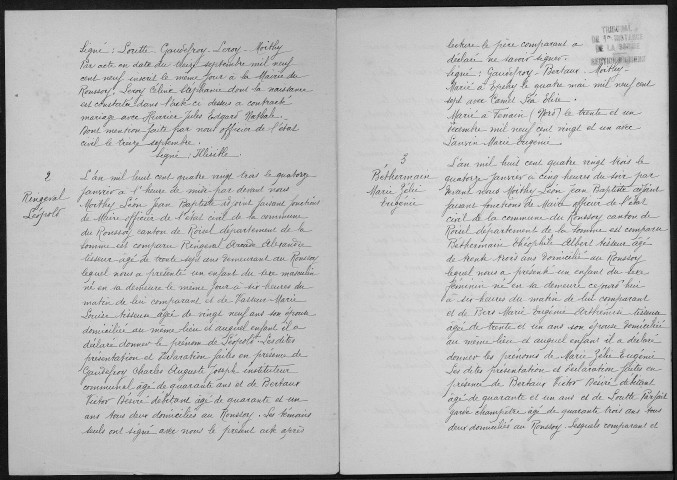 Signé : Loutte - Gaudefroy - Leroy - Moithy
Par acte en date du treize septembre mil neuf
cent neuf inscrit le même jour à la Mairie du
Ronssoy. Leroy Céline Stéphanie dont la naissance
est constatée dans l'acte ci dessus a contracté
mariage avec Jules Edgard
Dont mention faite par nous officier de l'état
civil le treize septembre.
Signé :
2
Rengeval
Léopold
L'an mil huit cent quatre vingt trois le quatorze
janvier à l'heure de midi par devant nous
Moithy Léon Jean Baptiste adjoint faisant fonctions
de Maire officier de l'état civil de la commune
du Ronssoy canton de Roisel département de la
Somme est comparu Rengeval Alexandre
tisseur âgé de trente sept ans demeurant au Ronssoy
lequel nous a présenté un enfant du sexe masculin
né en sa demeure le même jour à six heures du
matin de lui comparant et de Vasseur Marie
Louise tisseuse âgée de vingt neuf ans son épouse
domiciliée au même lieu et auquel enfant il a
déclaré donner le prénom de Léopold. Lesdites
présentation et déclaration faites en présence de
Gaudefroy Charles Auguste Joseph instituteur
communal âgé de quarante ans et de Bertaux
Victor Désiré débitant âgé de quarante et un
ans tous deux domiciliés au Ronssoy. Les témoins
seuls ont signé avec nous le présent acte après
lecture le père comparant a
déclaré ne savoir signer.
Signé : Gaudefroy - Bertaux - Moithy -
Marié à Epehy le quatre mai mil neuf cent
sept avec Camel Léa Elise.
Marié à Fenain (Nord) le trente et un
décembre mil neuf cent vingt et un avec
Marie Eugénie
TRIBUNAL
DE 1re INSTANCE
DE LA SOMME
3
Béthermain
Marie Zélie
Eugénie
L'an mil huit cent quatre vingt trois le
quatorze janvier à cinq heures du soir par
devant nous Moithy Léon Jean Baptiste adjoint
faisant fonctions de Maire officier de l'état
civil de la commune du Ronssoy canton de
Roisel département de la Somme est comparu
Béthermain Théophile Albert tisseur âgé
de trente trois ans domicilié au Ronssoy
lequel nous a présenté un enfant du sexe
féminin né en sa demeure cejourd'hui
à six heures du matin de lui comparant
et de Marie Eugénie tisseuse
âgée de trente et un ans son épouse domiciliée
au même lieu et auquel enfant il a déclaré
donner les prénoms de Marie Zélie Eugénie
Les dites présentation et déclaration faites en
présence de Bertaux Victor Désiré débitant
âgé de quarante et un ans et de Loutte Parfait
garde champêtre âgé de quarante trois ans tous
deux domiciliés au Ronssoy. Lesquels comparant et